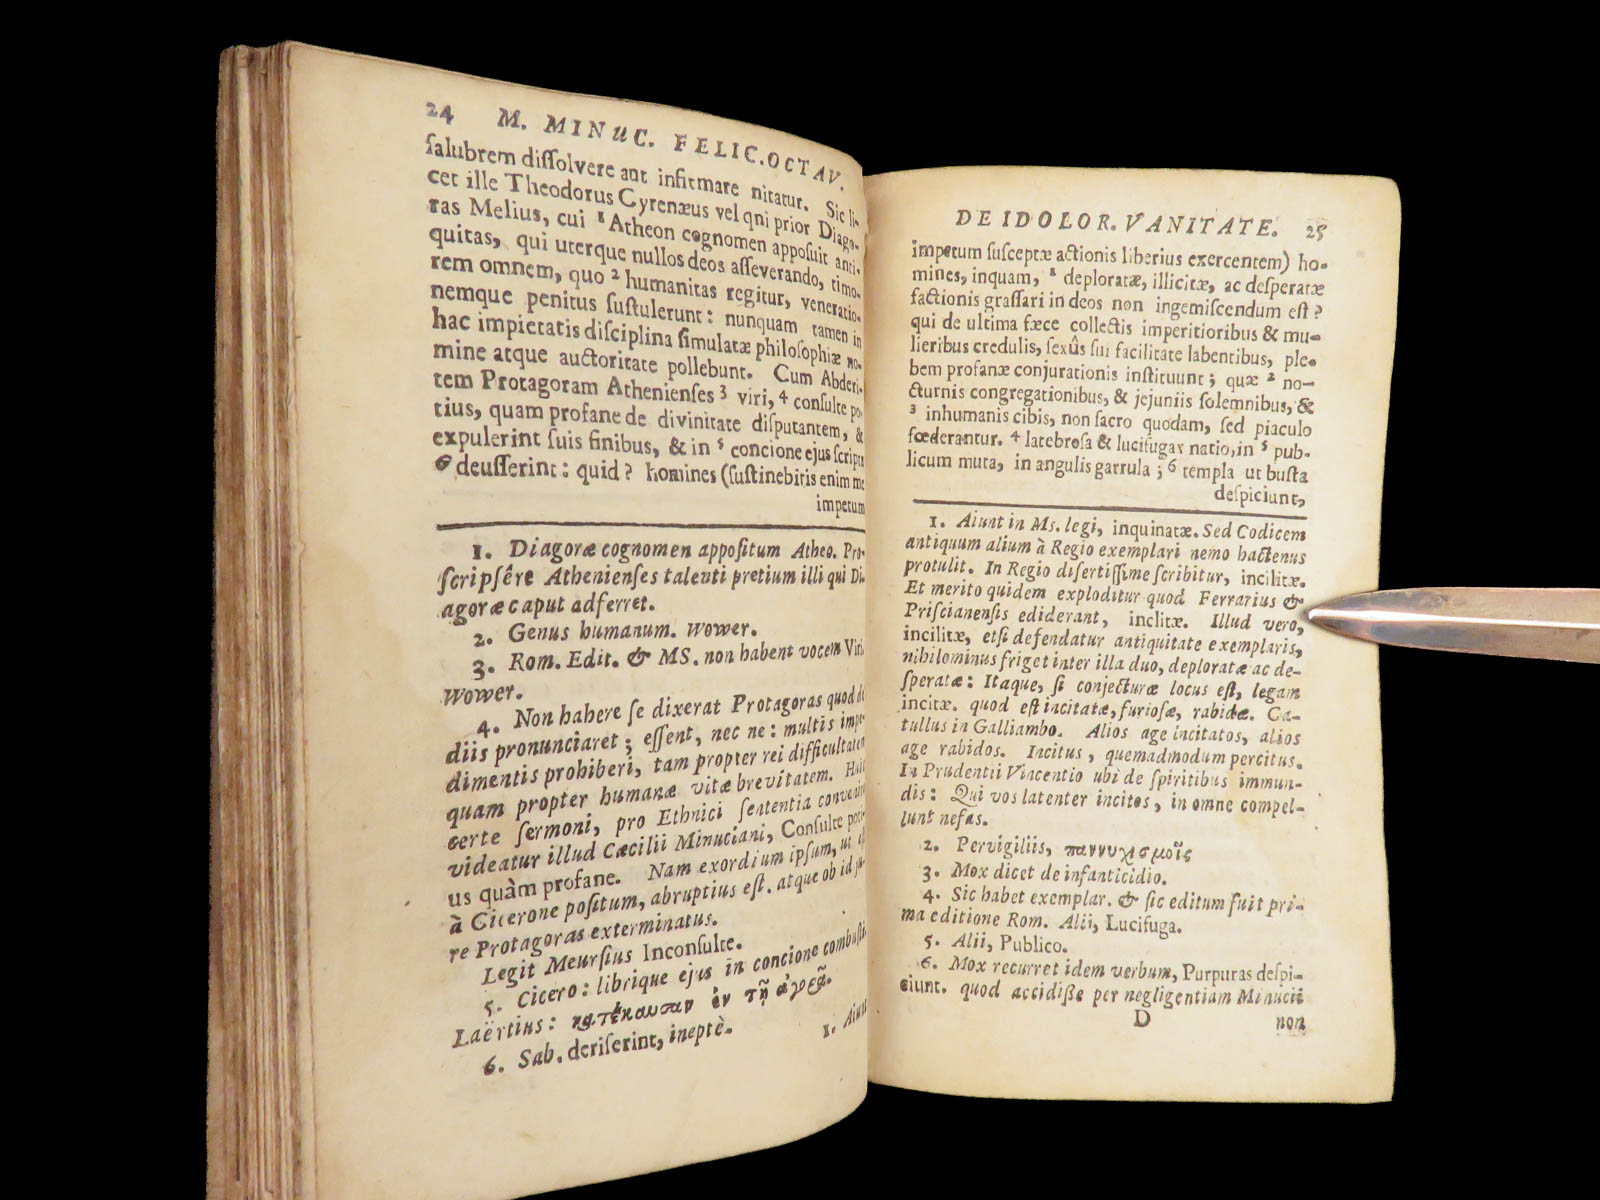 24 M. MINUC. FELIC. OCTAV.
ſalubrem diſſolvere aut infirmare nitatur. Sic li-
cet ille Theodorus Cyrenæus vel qni prior Diago-
ras Melius, cui ¹ Atheon cognomen appoſuit anti-
quitas, qui uterque nullos deos aſſeverando, timo-
rem omnem, quo ² humanitas regitur, veneratio-
nemque penitus ſuſtulerunt: nunquam tamen in
hac impietatis diſciplina ſimulatæ philoſophiæ no-
mine atque auctoritate pollebunt. Cum Abderi-
tem Protagoram Athenienſes ³ viri, ⁴ conſulte po-
tius, quam profane de divinitate diſputantem, &
expulerint ſuis finibus, & in ⁵ concione ejus ſcripta
⁶ deuſſerint: quid? homines (ſuſtinebitis enim me
impetum
1. Diagoræ cognomen appoſitum Atheo. Pro-
ſcripſêre Athenienſes talenti pretium illi qui Di-
agoræ caput adferret.
2. Genus humanum. Wower.
3. Rom. Edit. & MS. non habent vocem Viri.
Wower.
4. Non habere ſe dixerat Protagoras quod de
diis pronunciaret; eſſent, nec ne: multis impe-
dimentis prohiberi, tam propter rei difficultatem
quam propter humanæ vitæ brevitatem. Huic
certe ſermoni, pro Ethnici ſententia convenire
videatur illud Cæcilii Minuciani, Conſulte poti-
us quàm profane. Nam exordium ipſum, ut eſt
à Cicerone poſitum, abruptius eſt. atque ob id ju-
re Protagoras exterminatus.
Legit Meurſius Inconſulte.
5. Cicero: librique ejus in concione combuſti.
Laërtius: κατέκαυσαν ἐν τῇ ἀγορᾷ.
6. Sab. deriſerint, ineptè.
1. Aiunt
DE IDOLOR. VANITATE. 25
impetum ſuſceptæ actionis liberius exercentem) ho-
mines, inquam, ¹ deploratæ, illicitæ, ac deſperatæ
factionis graſſari in deos non ingemiſcendum eſt?
qui de ultima fæce collectis imperitioribus & mu-
lieribus credulis, ſexûs ſui facilitate labentibus, ple-
bem profanæ conjurationis inſtituunt; quæ ² no-
cturnis congregationibus, & jejuniis ſolemnibus, &
³ inhumanis cibis, non ſacro quodam, ſed piaculo
fœderantur. ⁴ latebroſa & lucifugax natio, in ⁵ pub-
licum muta, in angulis garrula; ⁶ templa ut buſta
deſpiciunt,
1. Aiunt in Ms. legi, inquinatæ. Sed Codicem
antiquum alium à Regio exemplari nemo hactenus
protulit. In Regio diſertiſſime ſcribitur, incilitæ.
Et merito quidem exploditur quod Ferrarius &
Priſcianenſis ediderant, inclitæ. Illud vero,
incilitæ, etſi defendatur antiquitate exemplaris,
nihilominus friget inter illa duo, deploratæ ac de-
ſperatæ: Itaque, ſi conjecturæ locus eſt, legam
incitæ. quod eſt incitatæ, furioſæ, rabidæ. Ca-
tullus in Galliambo. Alios age incitatos, alios
age rabidos. Incitus, quemadmodum percitus.
In Prudentii Vincentio ubi de ſpiritibus immun-
dis: Qui vos latenter incitos, in omne compel-
lunt nefas.
2. Pervigiliis, παννυχισμοῖς
3. Mox dicet de infanticidio.
4. Sic habet exemplar. & ſic editum fuit pri-
ma editione Rom. Alii, Lucifuga.
5. Alii, Publico.
6. Mox recurret idem verbum, Purpuras deſpi-
ciunt. quod accidiſſe per negligentiam Minucii
D non